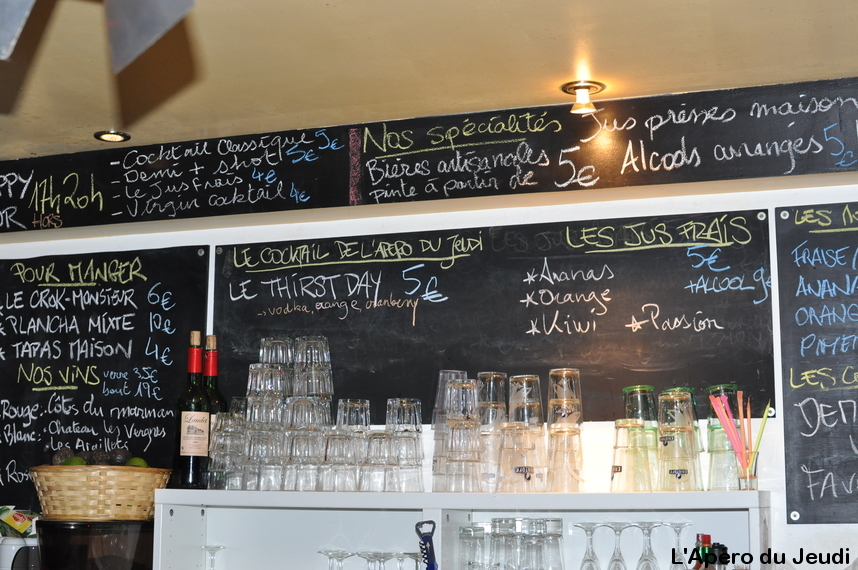 PPY
17h20h
- Cocktail Classique 5€
- Demi + shot 5€
- Le Jus frais 4€
- Virgin cocktail 4€
Nos spécialités
Bières artisanales
pinte à partir de 5€
Jus pressés maison
Alcools arrangés 5
POUR MANGER
LE CROK-MONSIEUR 6€
PLANCHA MIXTE
* TAPAS MAISON 4€
NOS VINS
verre 3,5€
bout 19€
Rouge: Côtes du marmandais
Blanc:
LE COCKTAIL DE L'APERO DU JEUDI
LE THIRSTDAY 5€
→ vodka, orange, cranberry
LES JUS FRAIS
5€
+ALCOOL
* Ananas
* Orange
* Kiwi
* Passion
LES
FRAISE
ANANA
ORANG
PIMEN
LES
DEM
FAV
L'Apéro du Jeudi